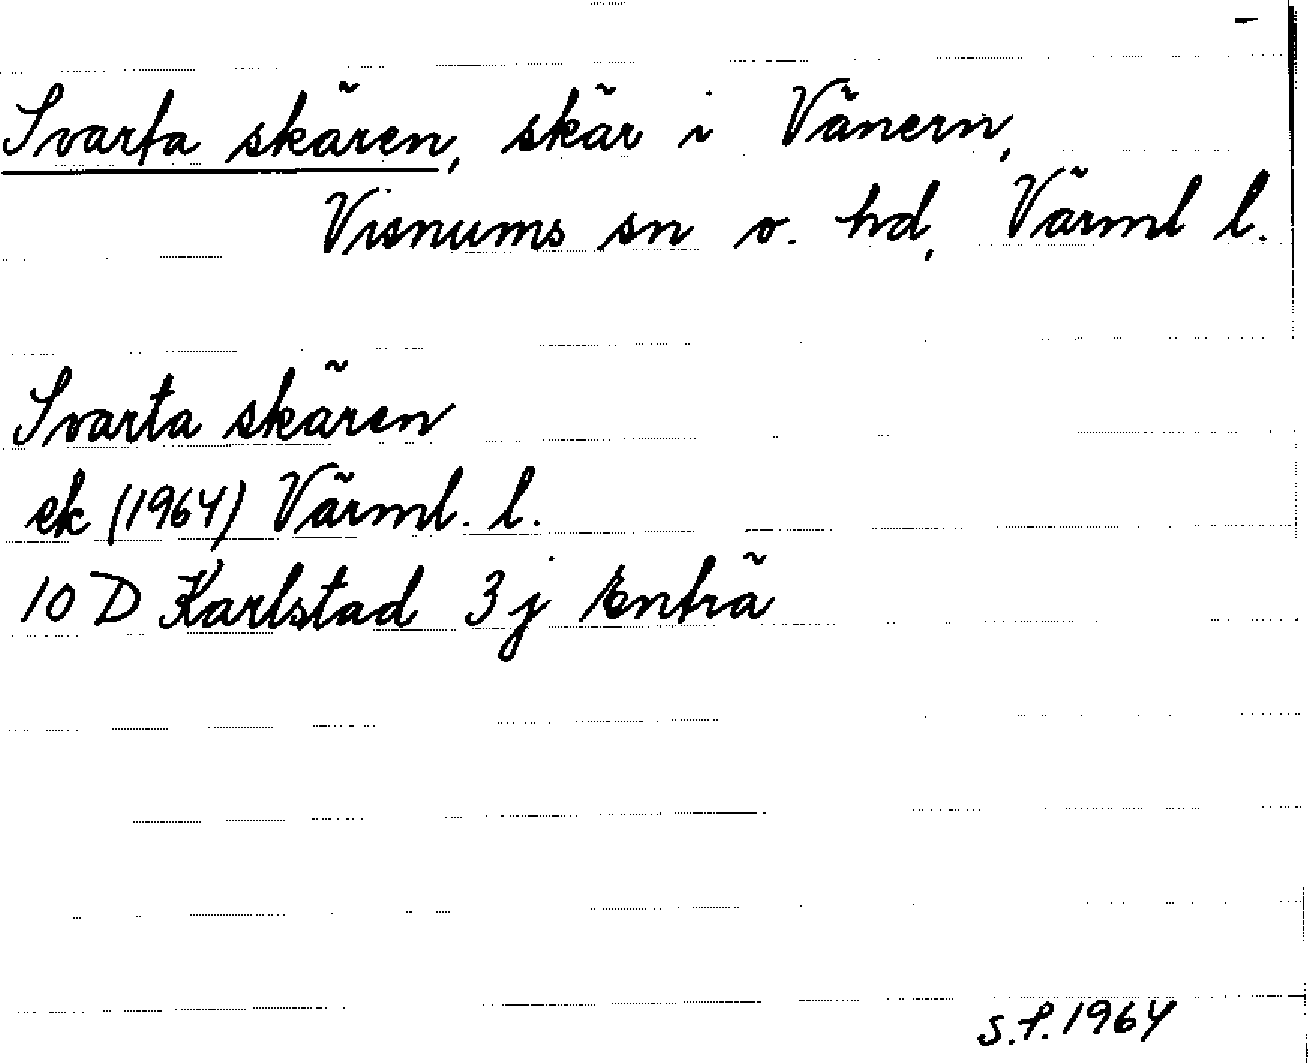 Svarta skären, skär i Vänern,
Visnums sn o. hd, Värml l.
Svarta skären
ek (1964) Värml. l.
10 D Karlstad 3 j Enträ
S.P. 1964